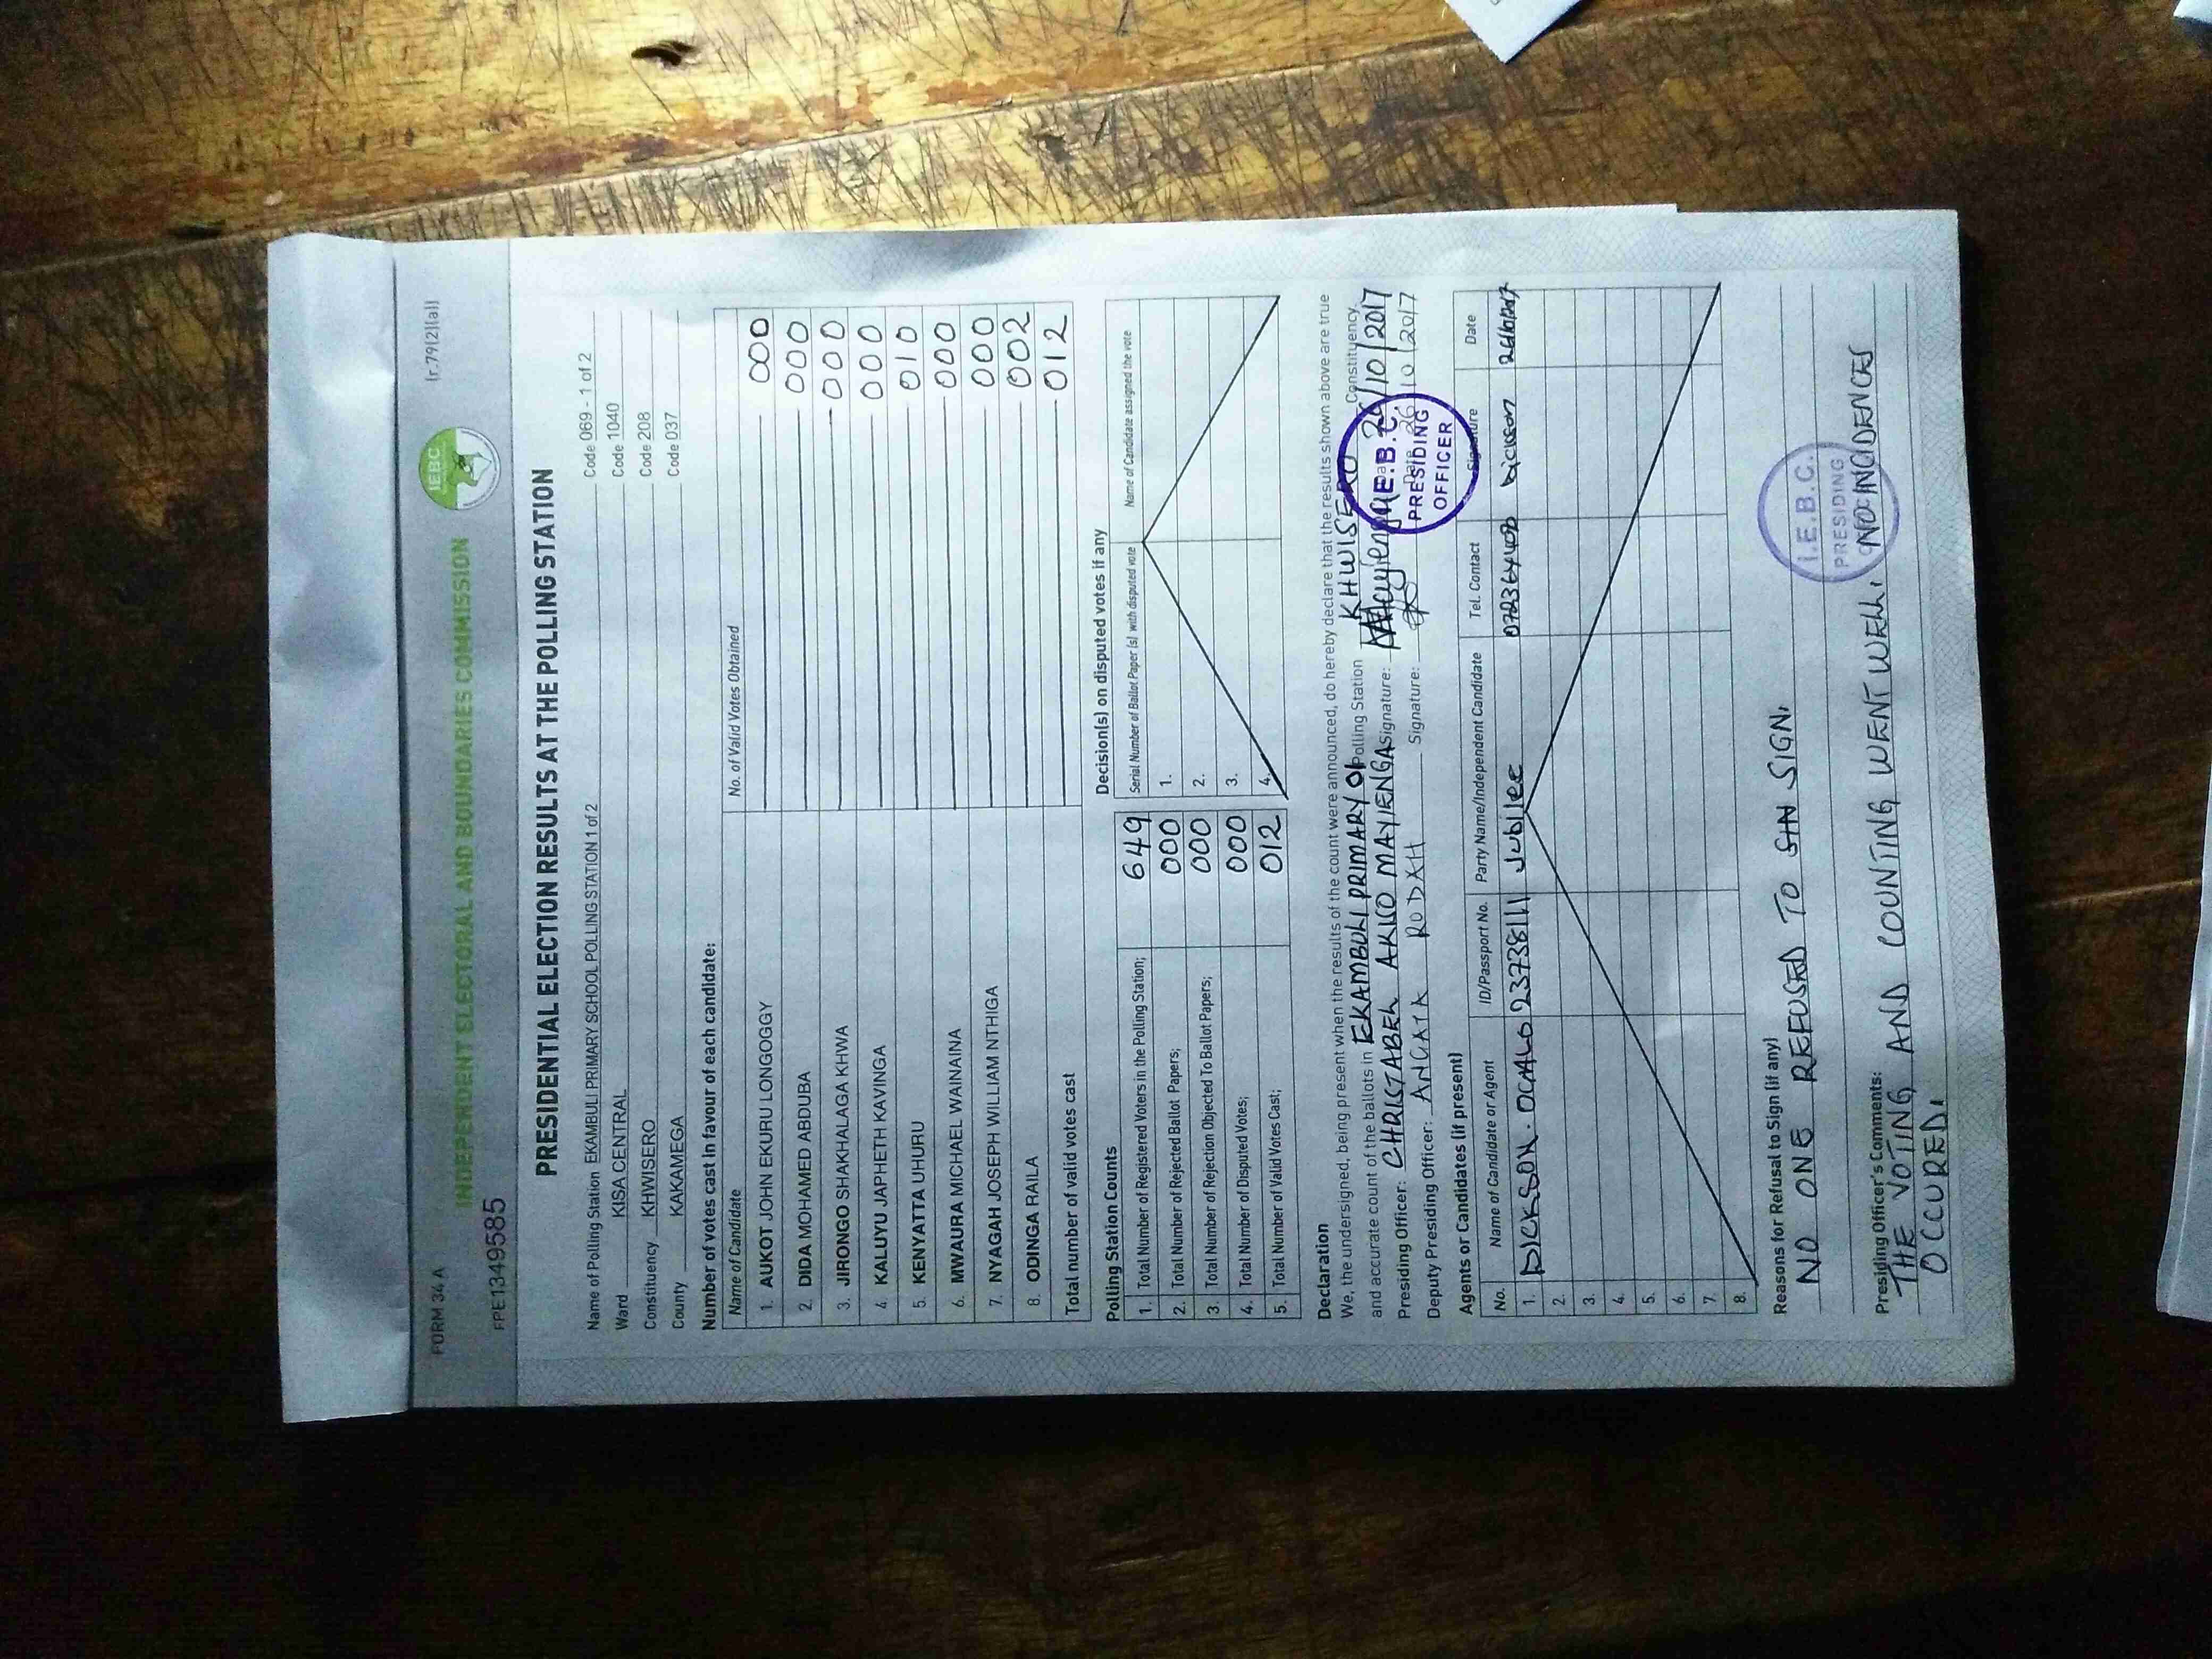 FORM 34 A
(r.79(2)(a))
IEBC
INDEPENDENT ELECTORAL AND BOUNDARIES COMMISSION
FPE1349585
PRESIDENTIAL ELECTION RESULTS AT THE POLLING STATION
Name of Polling Station EKAMBULI PRIMARY SCHOOL POLLING STATION 1 of 2 Code 069 - 1 of 2
Ward KISA CENTRAL Code 1040
Constituency KHWISERO Code 208
County KAKAMEGA Code 037
Number of votes cast in favour of each candidate:
Name of Candidate No. of Valid Votes Obtained
1. AUKOT JOHN EKURU LONGOGGY 000
2. DIDA MOHAMED ABDUBA 000
3. JIRONGO SHAKHALAGA KHWA 000
4 KALUYU JAPHETH KAVINGA 000
5. KENYATTA UHURU 010
6. MWAURA MICHAEL WAINAINA 000
7. NYAGAH JOSEPH WILLIAM NTHIGA 000
8. ODINGA RAILA 002
Total number of valid votes cast 012
Polling Station Counts
1. Total Number of Registered Voters in the Polling Station; 649
2. Total Number of Rejected Ballot Papers; 000
3. Total Number of Rejection Objected To Ballot Papers; 000
4. Total Number of Disputed Votes; 000
5. Total Number of Valid Votes Cast; 012
Decision(s) on disputed votes if any
Serial Number of Ballot Paper (s) with disputed vote Name of Candidate assigned the vote
1.
2.
3.
4.
Declaration
We, the undersigned, being present when the results of the count were announced, do hereby declare that the results shown above are true
and accurate count of the ballots in EKAMBULI PRIMARY 01 Polling Station KHWISERO Constituency.
Presiding Officer: CHRISTABEL AKILO MAYIENGA Signature: 26/10/2017
Deputy Presiding Officer: ANGATA RODAH Signature: Date 26/10/2017
I.E.B.C.
PRESIDING
OFFICER
Agents or Candidates (if present)
No. Name of Candidate or Agent ID/Passport No. Party Name/Independent Candidate Tel. Contact Signature Date
1. DICKSON. OCHALO 23738111 Jubilee Dickson
2.
3.
4.
5.
6.
7.
8.
Reasons for Refusal to Sign (if any)
NO ONE REFUSED TO SIN SIGN.
I.E.B.C.
PRESIDING
Presiding Officer's Comments:
THE VOTING AND COUNTING WENT WELL. NO INCIDENCES
OCCURED.